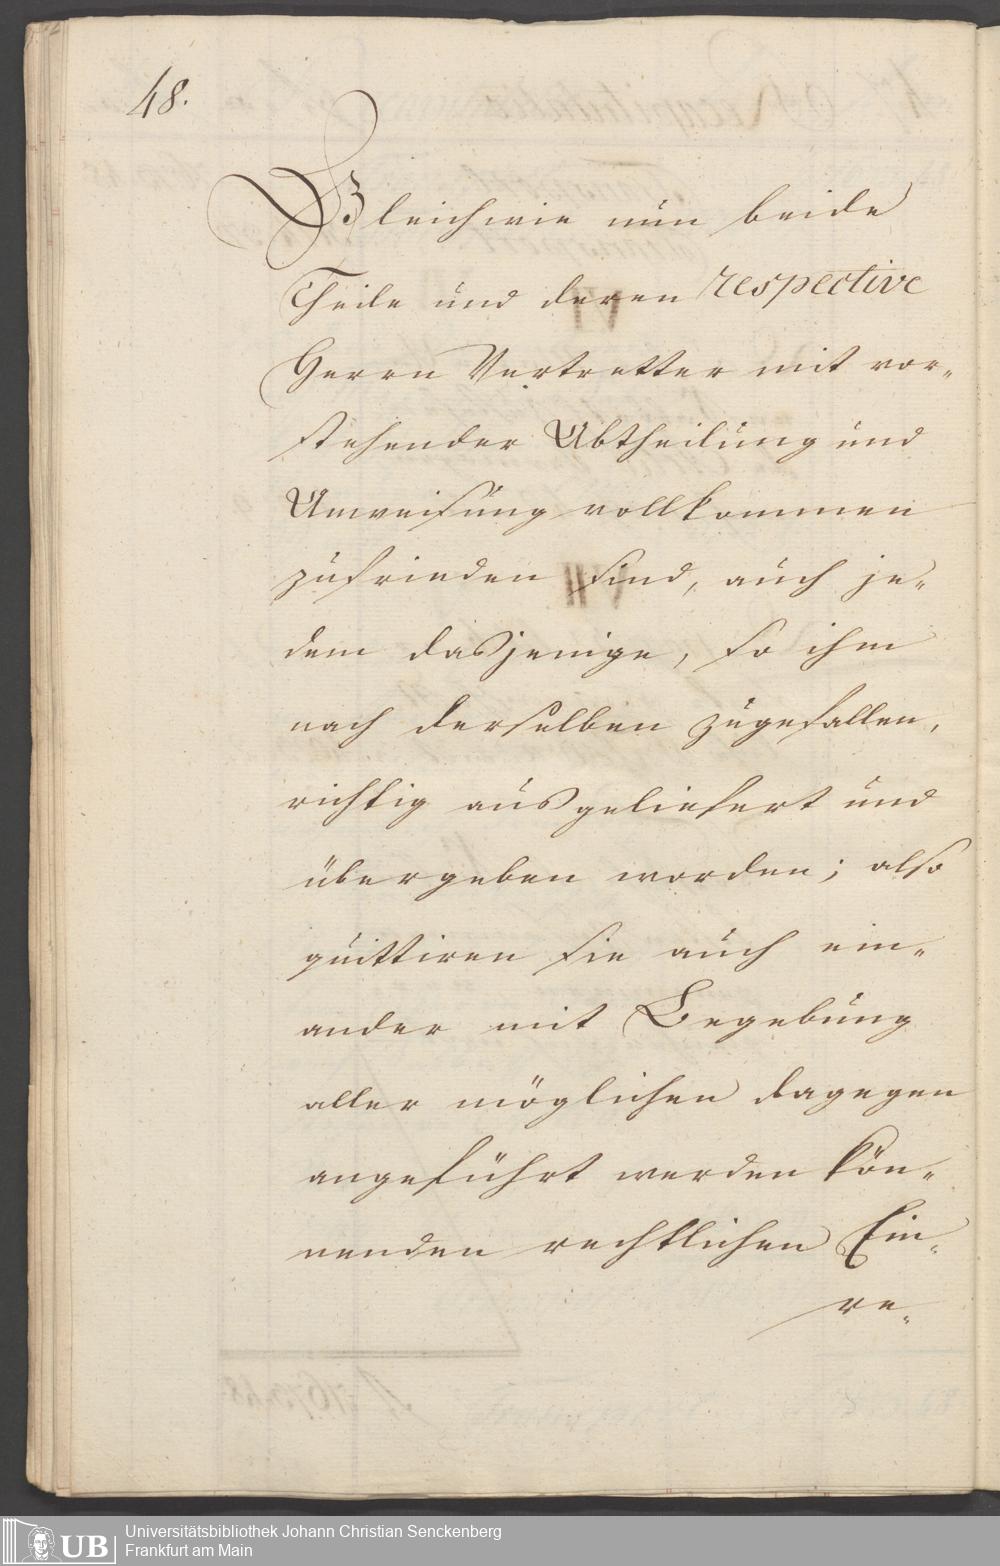 48.
Gleichwie nun beide
Theile und deren respective
Herrn Vertretter mit vor-
stehender Abtheilung und
Anweisung vollkommen
zufrieden sind, auch je-
dem dasjenige, so ihm
nach derselben zugefallen,
richtig ausgeliefert und
übergeben worden; also
quittiren sie auch ein-
ander mit Begebung
aller möglichen dagegen
angeführt werden kön-
nenden rechtlichen Ein-
re-
UB
Universitätsbibliothek Johann Christian Senckenberg
Frankfurt am Main